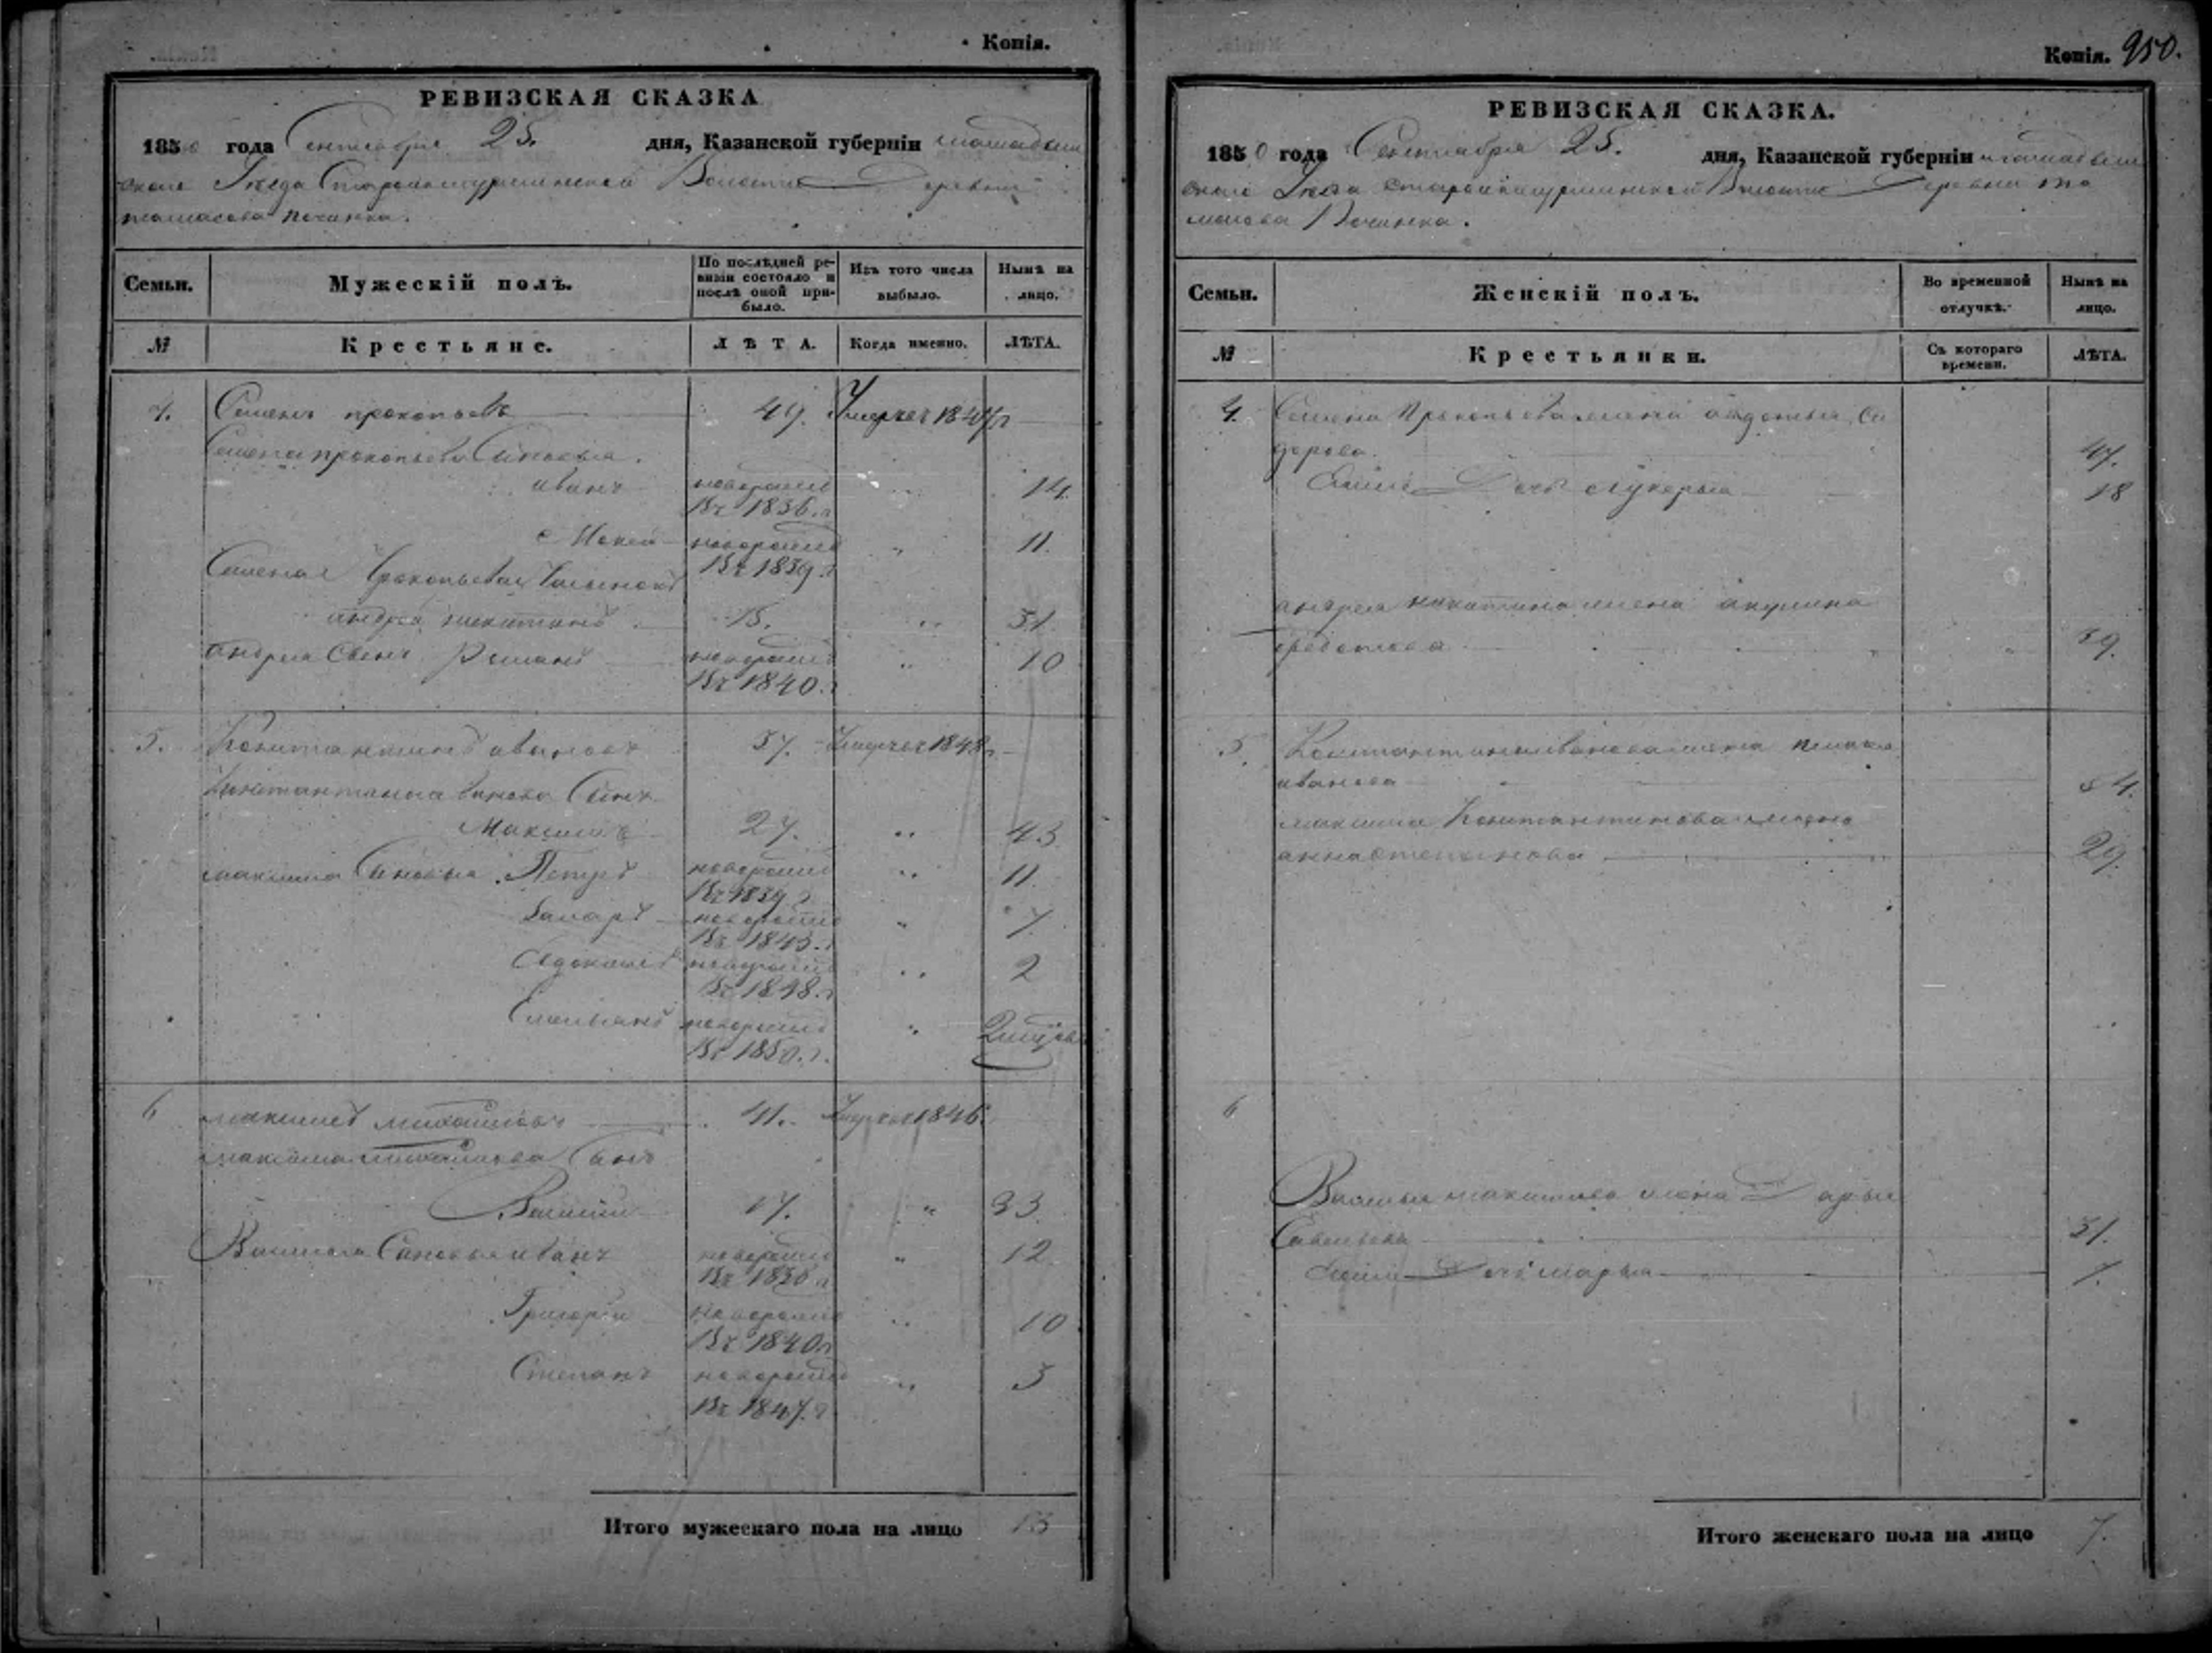 Копія.
РЕВИЗСКАЯ СКАЗКА
1850 года Сентября 25. дня, Казанской губерніи
Уезда Волости Деревни
починка.
Семьи.
Мужескій полъ.
По послѣдней ревизіи состояло и послѣ оной прибыло.
Изъ того числа выбыло.
Нынѣ на лицо.
№
Крестьяне.
ЛѢТА.
Когда именно.
ЛѢТА.
4. Семенъ прокопьевъ 49. Умерчег 1847г
Семена прокопьева Сыновья.
иванъ новорожд 14.
Въ 1836.г
Мокей новорожд 11.
Въ 1839.г
Семена Прокопьева
андрей никитинъ 15. 31
андрея Сынъ Романъ новорожд 10
Въ 1840.г
5. Константинъ ивановъ 57. 1848г
Константина иванова Сынъ
Максимъ 27. 43
максима Сыновья Петръ новорожд 11.
Въ 1839 г
новорожд 7.
Въ 1843.г
Евдокимъ новорожд 2
Въ 1848.г
Емельянъ новорожд
Въ 1850.г.
6 максимъ михайловъ 41. 1846.
максима михайлова Сынъ
Василий 17. 33
Василья Сыновья иванъ новорожд 12
Въ 1838 г
Григорій новорожд 10
Въ 1840г
Степанъ новорожд 3
Въ 1847.г
Итого мужескаго пола на лицо 13
Копія. 950.
РЕВИЗСКАЯ СКАЗКА.
1850 года Сентября 25. дня, Казанской губерніи
Уезда Волости Деревни
Починка.
Семьи.
Женскій полъ.
Во временной отлучкѣ.
Нынѣ на лицо.
№
Крестьянки.
Съ котораго времени.
ЛѢТА.
4. Семена Прокопьева жена авдотья Си
дорова 47.
Дочь лукерья 18
андрея никитина жена акулина
федотова 39.
5. Константина иванова жена
иванова 54.
максима Константинова жена
анна степанова 29.
6
Василья максимова жена Дарья
Савельева 31.
Дочь марья 7.
Итого женскаго пола на лицо 7.